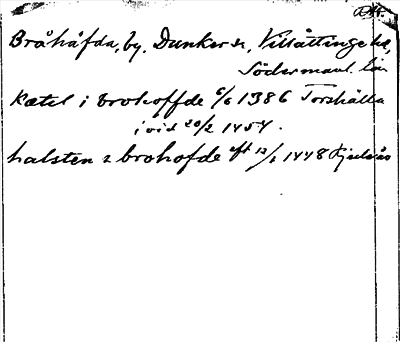 DMS.
Bråhåfda, by, Dunker sn, Villåttinge hd,
Södermanl. län
Kætel i brohoffde 6/6 1386 Torshälla
i vid 20/2 1454.
halsten i brohofde eft 12/1 1448